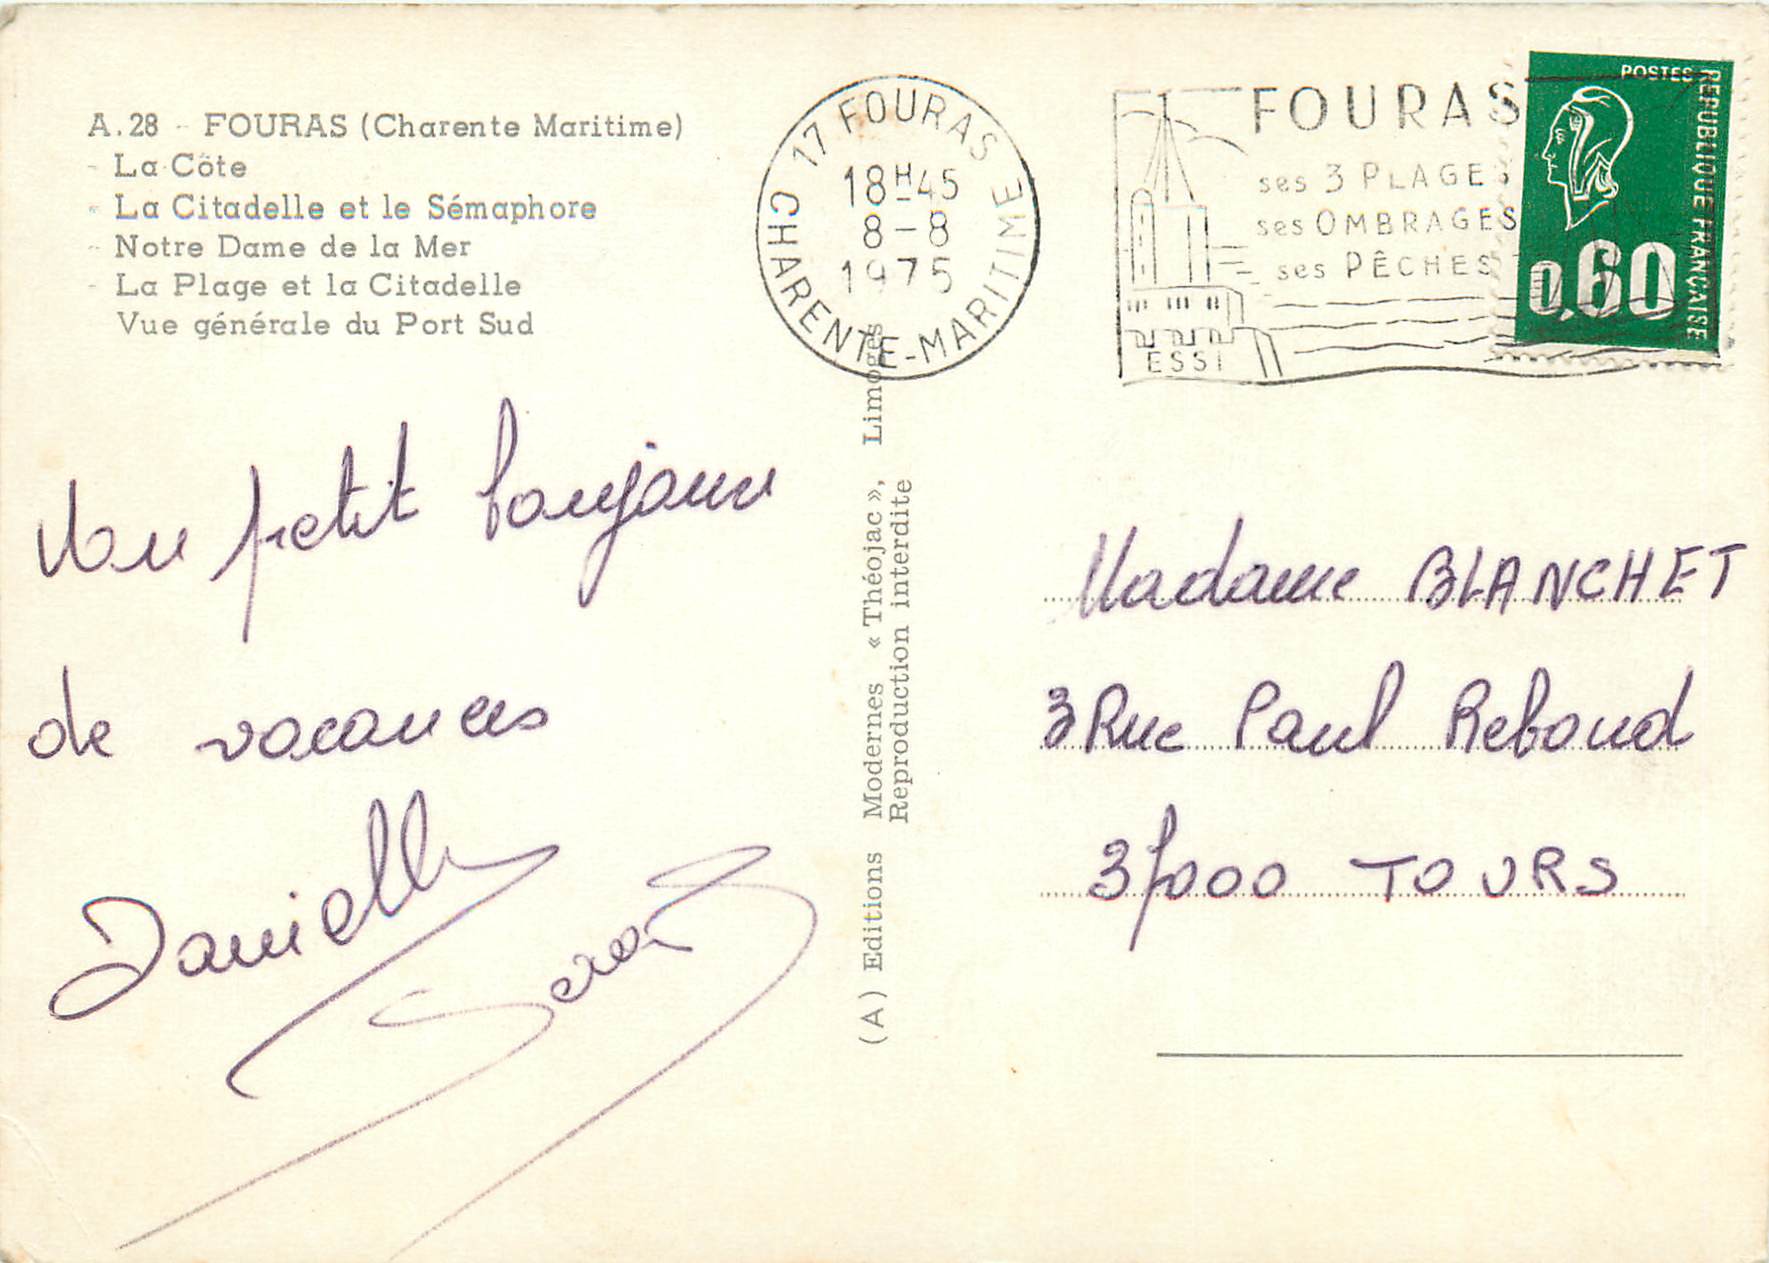 A.28 - FOURAS (Charente Maritime)
- La Côte
- La Citadelle et le Sémaphore
- Notre Dame de la Mer
- La Plage et la Citadelle
Vue générale du Port Sud
17 FOURAS
18H45
8-8
1975
CHARENTE-MARITIME
FOURAS
ses 3 PLAGES
ses OMBRAGES
ses PÊCHES
ESSI
POSTES
REPUBLIQUE FRANÇAISE
0,60
petit bonjour
de vacances
Danielle
(A) Editions Modernes « Théojac », Limoges
Reproduction interdite
Madame BLANCHET
3 Rue Paul Reboud
37000 TOURS